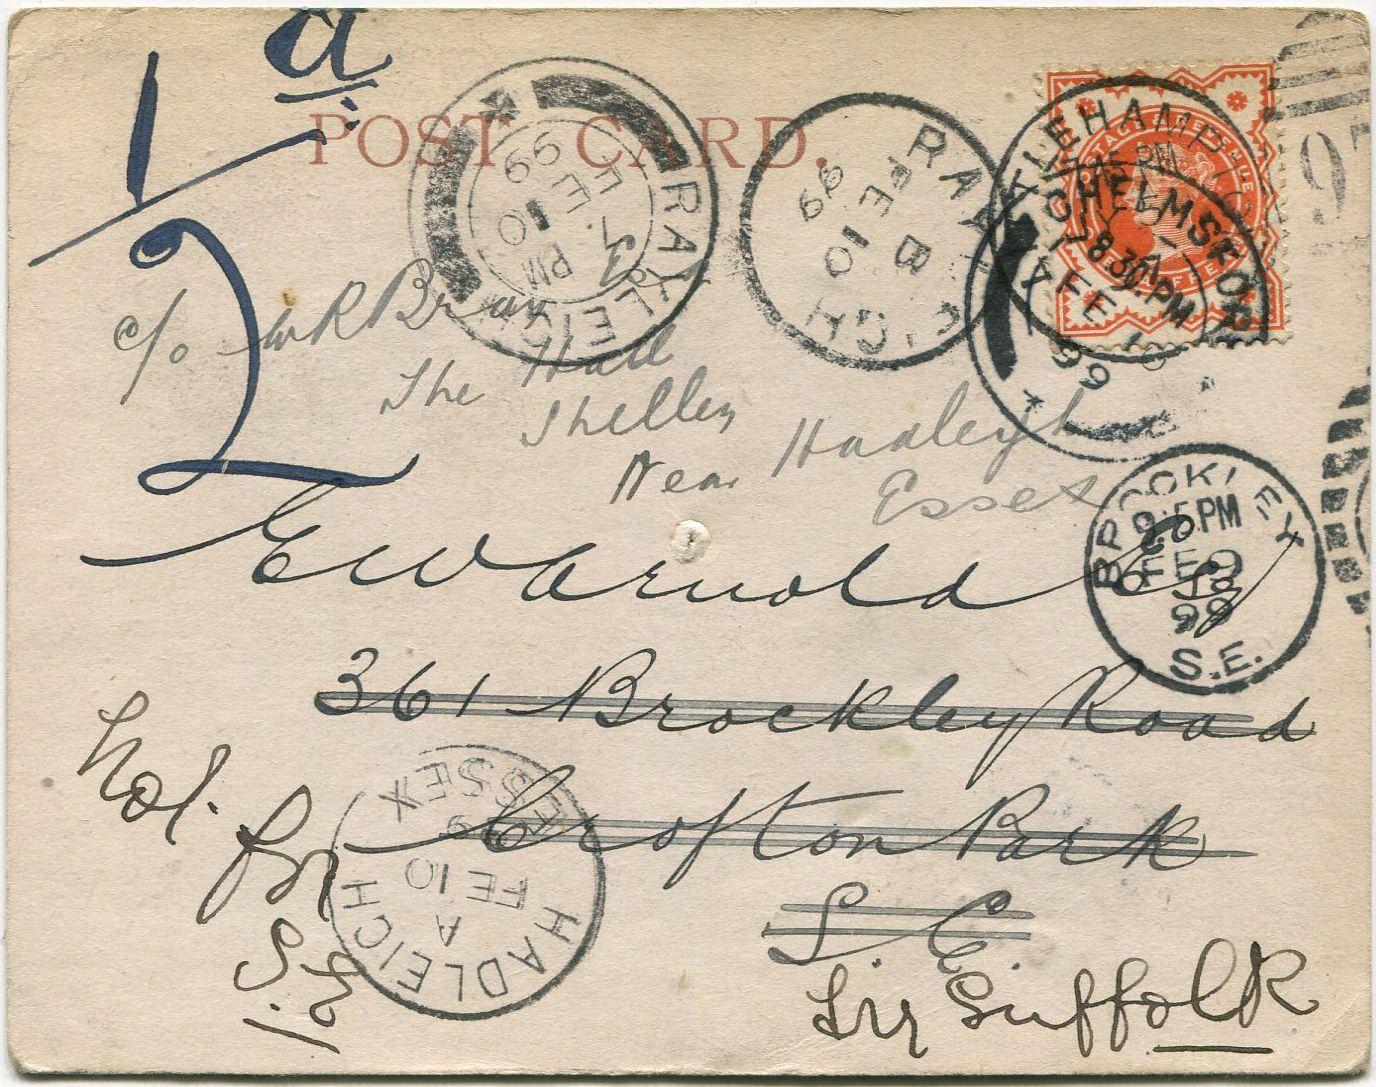 1/2 d
POST CARD.
RAYLEIGH
7. PM
FE 10
99
RAYLEIGH
B
FE 10
99
CHELMSFORD
8.30 PM
FE 10
99
POSTAGE & REVENUE
97
c/o W R Brian
The Hall
Shelley
Near Hadleigh
Essex
E W Arnold Esq
BROCKLEY
9.15 PM
FE
99
S.E.
361 Brockley Road
Crofton Park
S E
Not
for
S.E.
HADLEIGH
A
FE 10
99
ESSEX
Try Suffolk